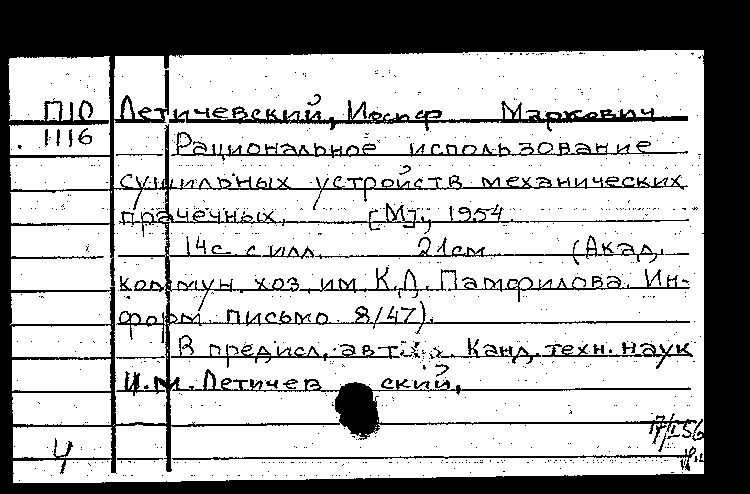 П10 Летичевский, Иосиф Маркович
1116 Рациональное использование
сушильных устройств механических
прачечных. [М], 1954.
14с. с илл. 21см (Акад.
коммун. хоз. им. К.Д. Памфилова. Ин-
форм. письмо 8/47).
В предисл. авт. Канд. техн. наук
И.М. Летичев ский.
17/I 56
Ч